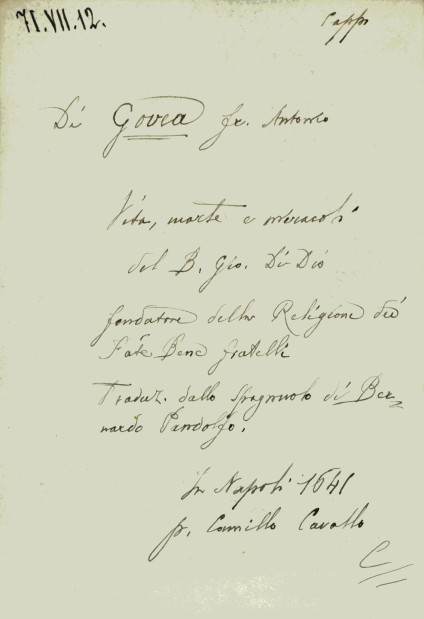 71.VII.12.
Capps
Di Govea fr. Antonio
Vita, morte e miracoli
del B. Gio. Di Dio
fondatore della Religione dei
Fate Bene fratelli
Traduz. dallo spagnuolo di Ber=
nardo Pandolfo.
In Napoli 1641
pr. Camillo Cavallo
C